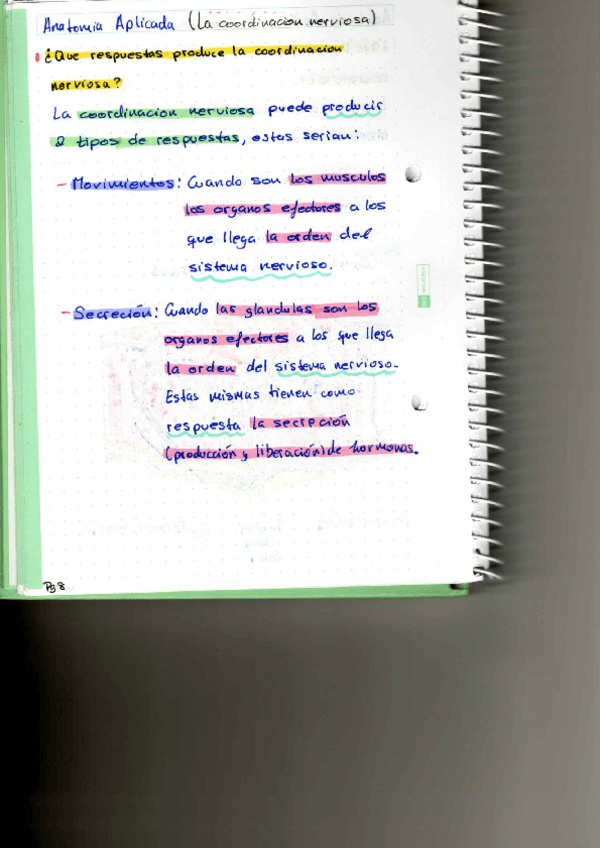 Anatomia Aplicada (La coordinacion nerviosa)
¿Que respuestas produce la coordinacion
nerviosa?
La coordinacion nerviosa puede producir
2 tipos de respuestas, estas serian:
- Movimientos: Cuando son los musculos
los organos efectores a los
que llega la orden del
sistema nervioso.
- Secreción: Cuando las glandulas son los
organos efectores a los que llega
la orden del sistema nervioso.
Estas mismas tienen como
respuesta la secreción
(producción y liberación) de hormonas.
Pg 8